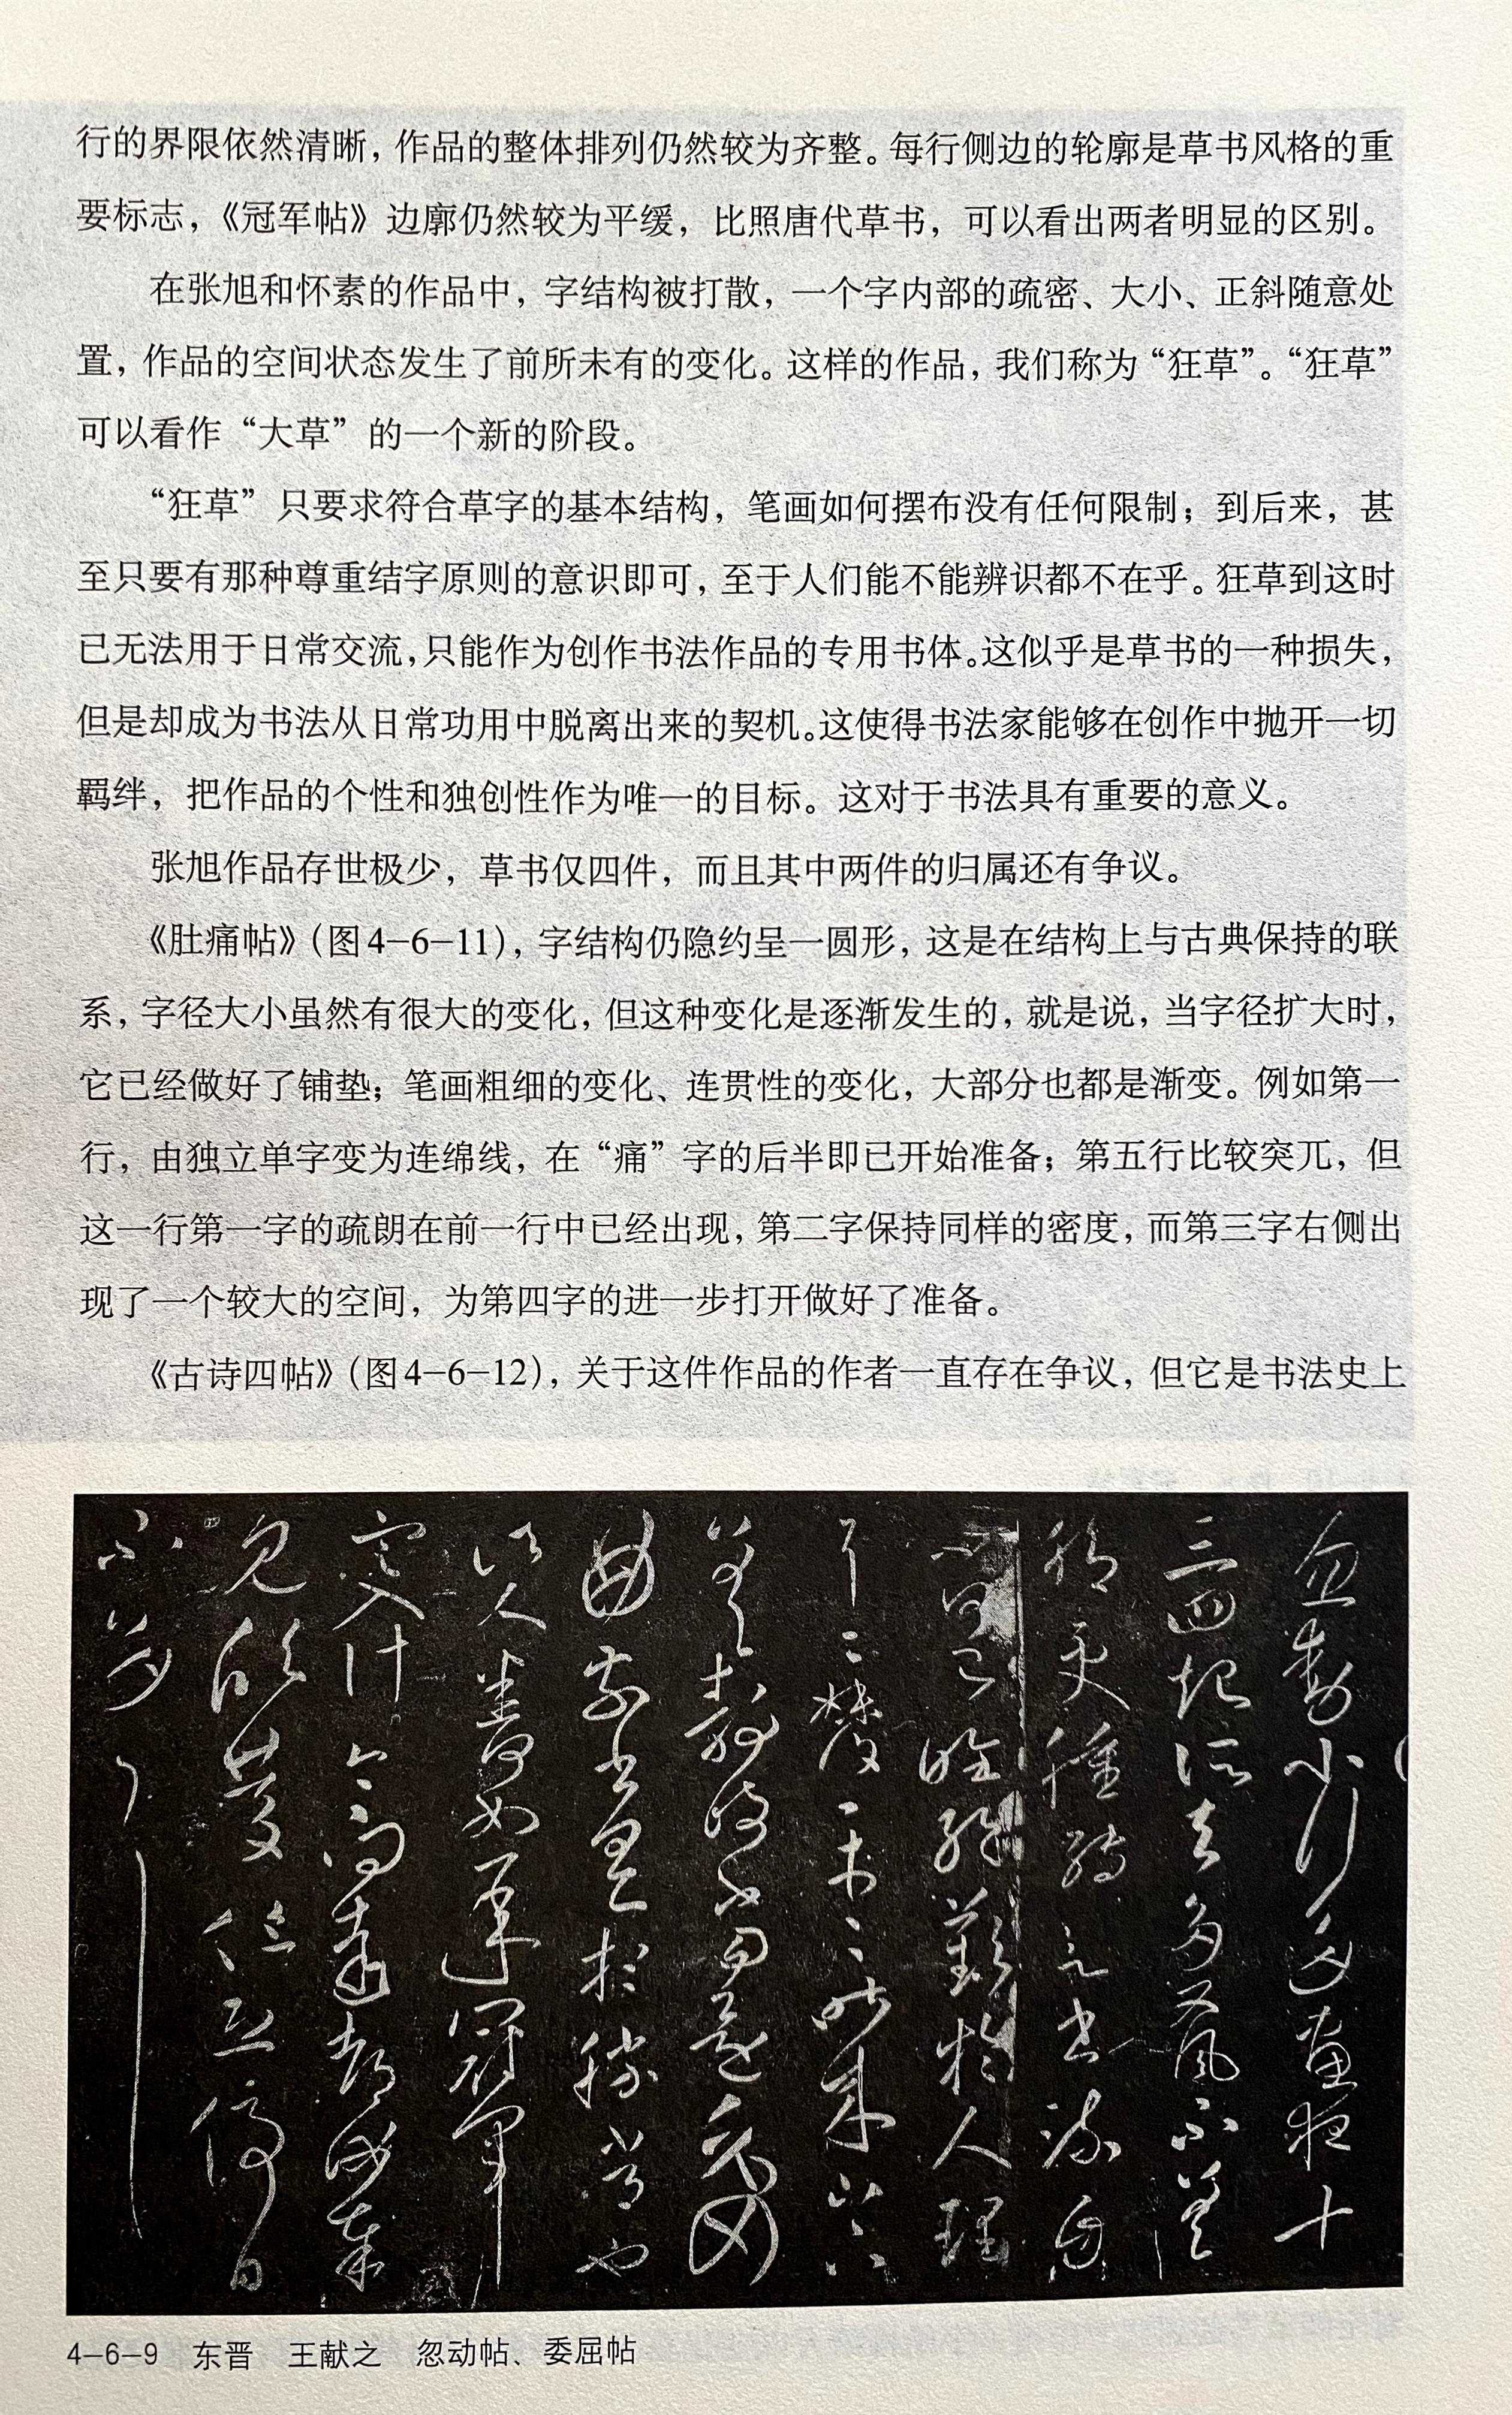 行的界限依然清晰，作品的整体排列仍然较为齐整。每行侧边的轮廓是草书风格的重
要标志，《冠军帖》边廓仍然较为平缓，比照唐代草书，可以看出两者明显的区别。
在张旭和怀素的作品中，字结构被打散，一个字内部的疏密、大小、正斜随意处
置，作品的空间状态发生了前所未有的变化。这样的作品，我们称为“狂草”。“狂草”
可以看作“大草”的一个新的阶段。
“狂草”只要求符合草字的基本结构，笔画如何摆布没有任何限制；到后来，甚
至只要有那种尊重结字原则的意识即可，至于人们能不能辨识都不在乎。狂草到这时
已无法用于日常交流，只能作为创作书法作品的专用书体。这似乎是草书的一种损失，
但是却成为书法从日常功用中脱离出来的契机。这使得书法家能够在创作中抛开一切
羁绊，把作品的个性和独创性作为唯一的目标。这对于书法具有重要的意义。
张旭作品存世极少，草书仅四件，而且其中两件的归属还有争议。
《肚痛帖》（图4-6-11），字结构仍隐约呈一圆形，这是在结构上与古典保持的联
系，字径大小虽然有很大的变化，但这种变化是逐渐发生的，就是说，当字径扩大时，
它已经做好了铺垫；笔画粗细的变化、连贯性的变化，大部分也都是渐变。例如第一
行，由独立单字变为连绵线，在“痛”字的后半即已开始准备；第五行比较突兀，但
这一行第一字的疏朗在前一行中已经出现，第二字保持同样的密度，而第三字右侧出
现了一个较大的空间，为第四字的进一步打开做好了准备。
《古诗四帖》（图4-6-12），关于这件作品的作者一直存在争议，但它是书法史上
4-6-9 东晋 王献之 忽动帖、委屈帖